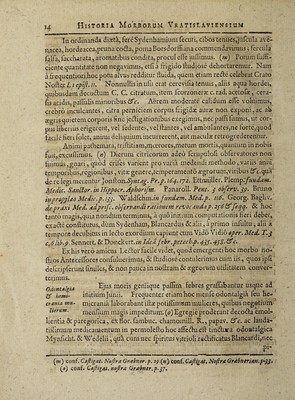 14 HISTORIA MORBORUM VRATISLAVIENSIUM
In ordinanda diæta, fere Sydenhamium secuti, cibos tenues, juscula avenacea, hordeacea, pruna cocta, poma Borsdorffiana commendavimus; fercula
falsa, saccharata, aromatibus condita, procul esse jussimus. (m) Potum sufficiente quantitate non negavimus, etsi a frigido studiose dehortaremur. Nam
à frequentiori hoc potu alvus redditur fluida, quem etiam recte celebrat Crato
Noster l. 1 epist. 11. Nonnullis in usu erat cerevisia tenuis, aliis aqua hordei,
quibusdam decoctum C. C. citratum, item scorzonere c. rad. acetosæ, cerasis acidis, passulis minoribus &c. Aërem moderate calidum esse volumus,
crebrò inculcantes, citra perniciem corpus frigidæ auræ non exponi, ac ab
ægra quietem corporis sine jectigationibus exegimus, nec passi sumus, ut corpus liberius erigerent, vel sedentes, vel stantes, vel ambulantes, ne forte, quod
facile fieri solet, animi deliquium incurrerent, aut macule retrogrederentur.
Animi pathemata, tristitiam, mœrores, metum mortis, quantum in nobis
fuit, excussimus. (n) Dierum criticorum adeò scrupulosi observatores non
fuimus, gnari, quod crises varient pro varia medendi methodo, variis anni
temporibus, regionibus, vitæ genere, temperamento ægrotantium viribus &c. quâ
de re legi merentur Jonston. Syntag. Pr. p. 164. 172. Ettmuller. Platnp. fundam.
Medic. Sanctor. in Hippocr. Aphorism. Panaroll. Pent. 3 observ. 39. Bruno
in propyleo Medic. p. 135. Waldschmit in fundam. Med. p. 118. Georg. Bagliv.
de praxi Med. ad prisc. observandi rationem revocanda p. 156 & seqq. & hoc
tanto magis, quia nondum terminus, à quò initium computationis fieri debet,
exacte constitutus, dum Sydenham, Blancardus & alii, à primo insultu, alii à
tempore decubitus in lecto exordium capiunt cum Vidô Vidiô oper. Med. T. 3
c. 4 lib. 9. Sennert. & Donckert. in Idea febr. petechp. 435. 455. &c.
Ex his verò animus Lectori facile videt, quod emergenti hoc morbo nostros Antecessores consuluerimus, & studiosè contulerimus cum iis, quos ipsi
descripserunt similes, & non pauca in nostram & ægrorum utilitatem convertenimus.
Odontalgia & hemicrania mulierum.
Ejus moris geniique passim febres grassabantur usque ad
initium Junii. Frequenter etiam hoc mense odontalgiâ seu hemicraniâ laborabant istæ potissimum mulieres, quibus negotium
mensium magis impeditum. (o) Egregiè proderant decocta emollientia & paregorica, ex flor. sambuc. chamomill. R., papav. & &c. ac laudatissimum medicamentum in permolesto hoc affectu est tinctura odontalgica
Mynsicht. & Wedelii, quâ cum nec spiritus vitrioli rectificatus Blancardi, nec
pi-
(m) conf. Castigat. Nostra Grabner. p. 19 (n) conf. Castigat. Nostra Grabnerian. p. 33.
(o) conf. Castigat. nostra Grabner. p. 37.